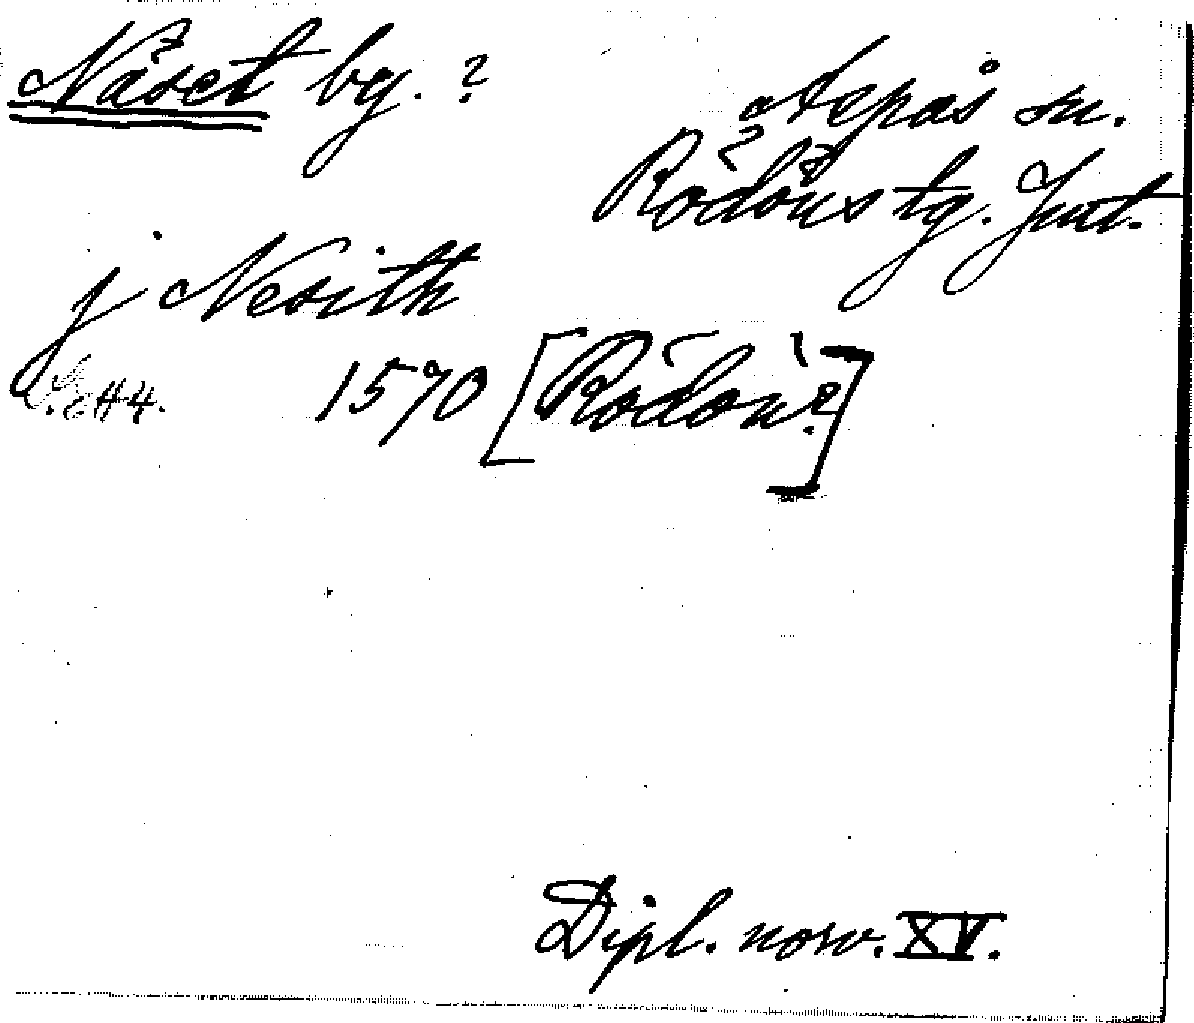 Näset by. ?
Aspås sn.
Rödöns tg. Jmt.
j Nesith
1570 [Rödön?]
Dipl. norv. XV.